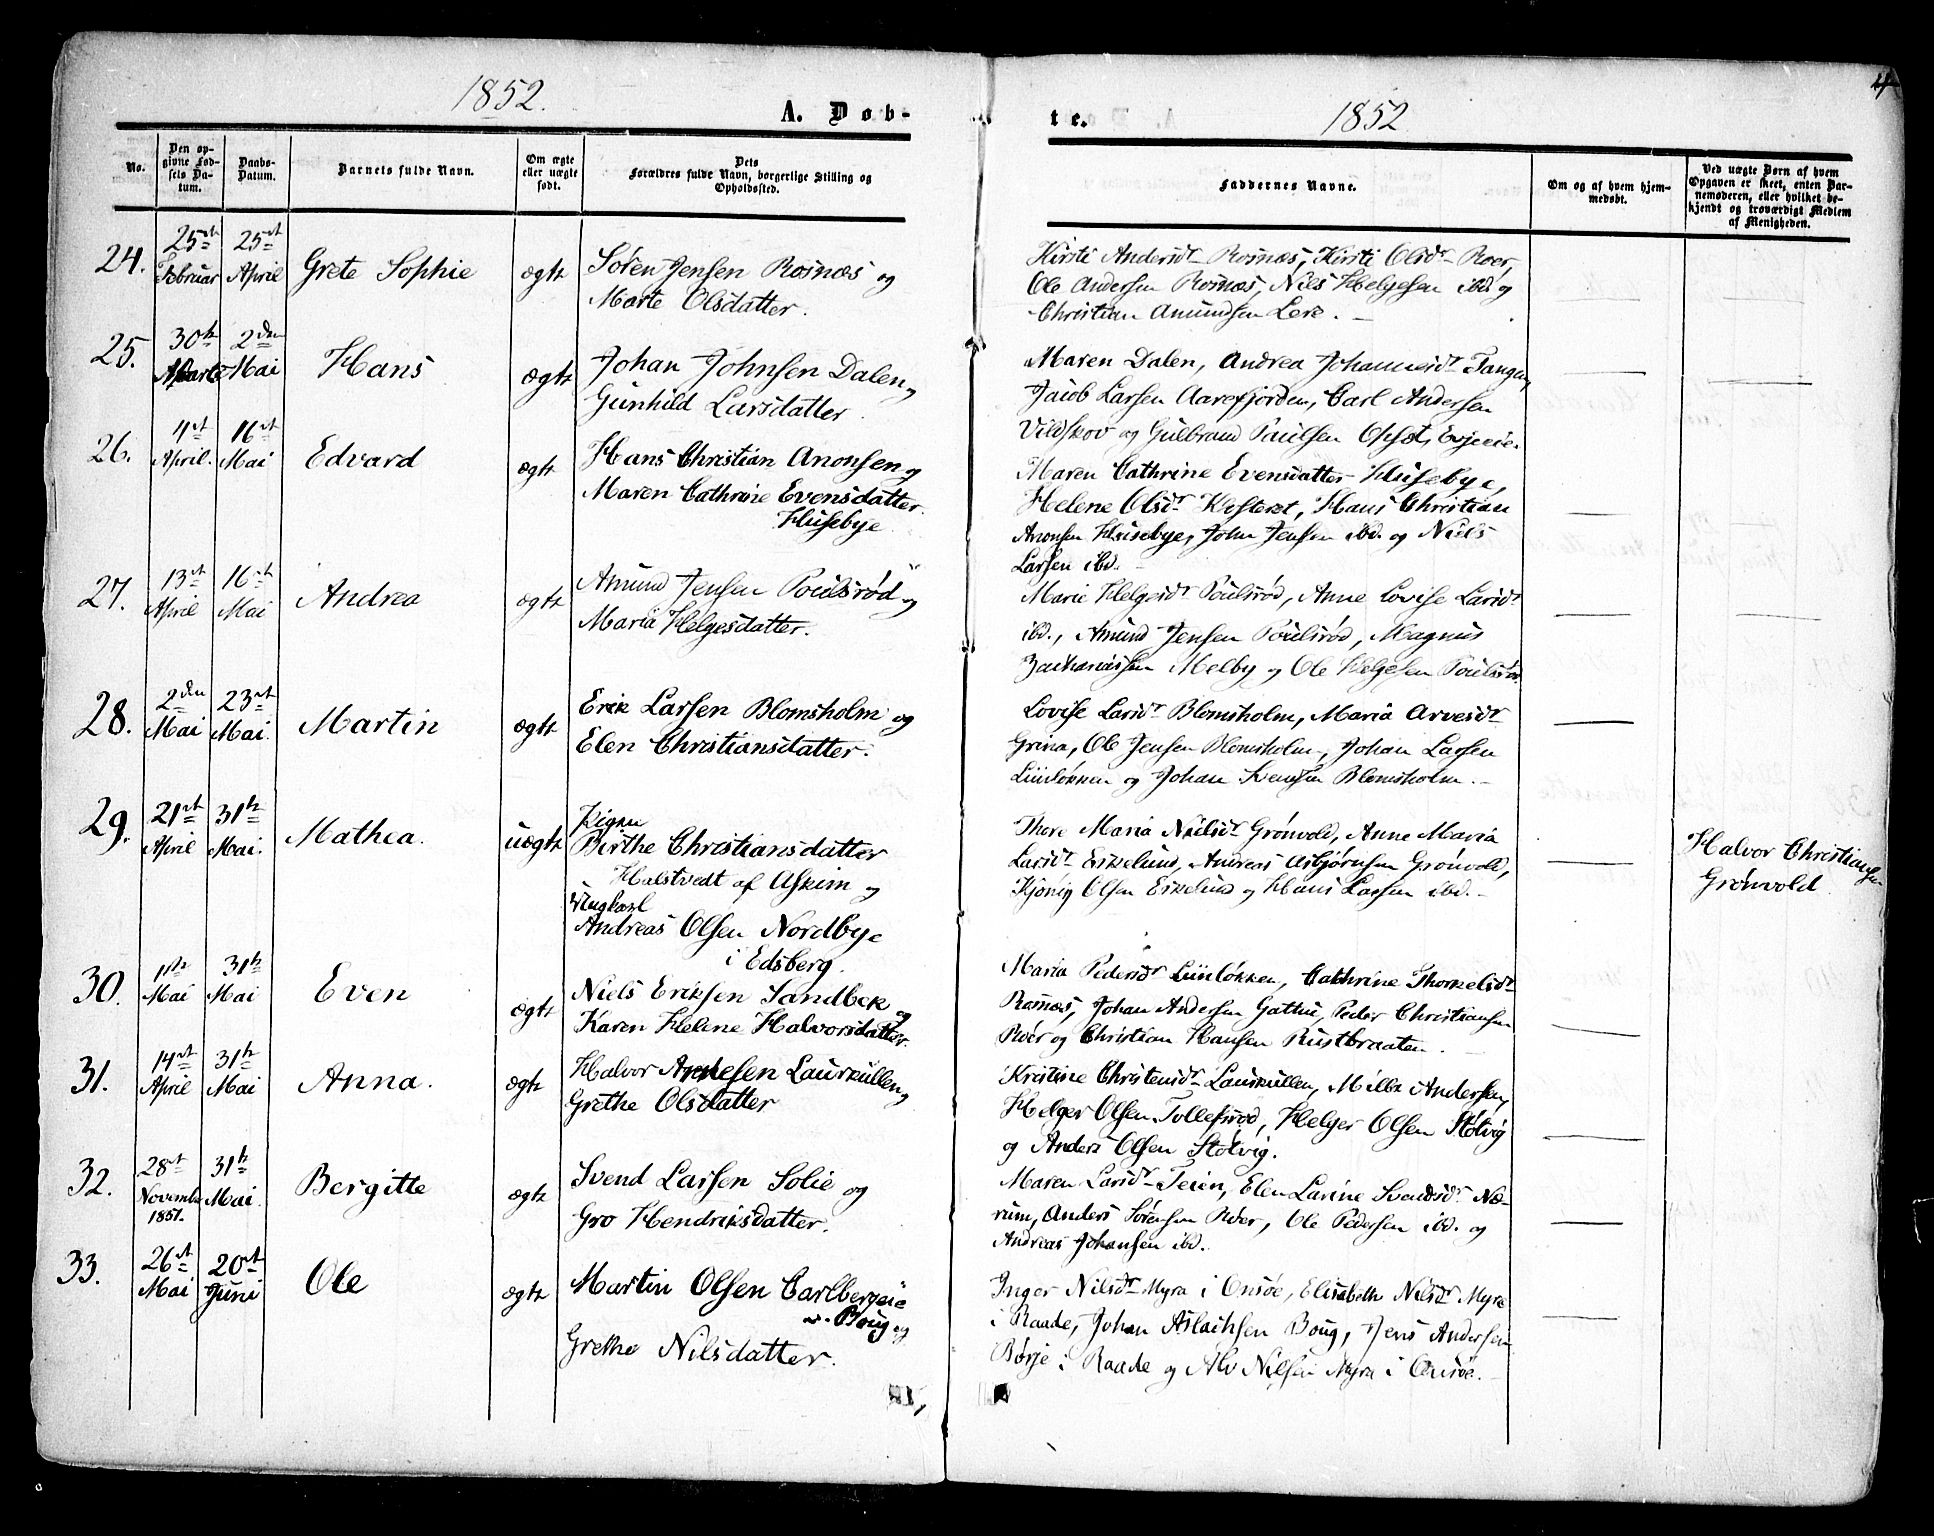 1852.
A. Døb-
No.
Den op-
givne Fød-
sels Da-
tum.
Daabs-
Datum.
Barnets fulde Navn.
Om ægte
eller uægte
født.
Dets
Forældres fulde Navn, borgerlige Stilling og
Opholdssted.
24.
25de
Februar
25de
April
Grete Sophie
ægte
Søren Jensen Rosnæs og
Marte Olsdatter.
25.
30te
Marts
2den
Mai
Hans
ægte
Johan Johnsen Dalen og
Gunhild Larsdatter.
26.
4de
April.
16de
Mai
Edvard
ægte
Hans Christian Anonsen og
Maren Cathrine Evensdatter.
Husebye.
27.
13de
April
16de
Mai
Andrea
ægte
Amund Jensen Poulsrød og
Maria Helgesdatter.
28.
2den
Mai
23de
Mai.
Martin
ægte
Erik Larsen Blomsholm og
Elen Christiansdatter.
29.
21de
April
31te
Mai.
Mathea.
uægte
Pigen
Birthe Christiansdatter
Halstvedt af Askim og
Ungkarl
Andreas Olsen Nordbye
i Edsberg.
30.
1ste
Mai
31te
Mai
Even
ægte
Niels Eriksen Sandbek og
Karen Helene Halvorsdatter.
31.
14de
April
31te
Mai
Anna.
ægte
Halvor Arnesen Laurkullen og
Grethe Olsdatter
32.
28de
November
1851.
31te
Mai.
Bergitte
ægte
Svend Larsen Solie og
Gro Hendriksdatter.
33.
26de
Mai
20de
Juni
Ole
ægte
Martin Olsen Carlbergeie
v. Boug og
Grethe Nilsdatter.
te.
1852
Faddernes Navne.
Om og af hvem hjem-
medøbt.
Ved uægte Børn af hvem
Opgaven er skeet, enten Bar-
nemoderen, eller hvilket be-
kjendt og troværdigt Medlem
af Menigheden.
Kirsti Andersdr Rosnæs, Kirsti Olsdr Roer,
Ole Andersen Rosnæs, Nils Helgesen ibd og
Christian Amundsen Lere. -
Maren Dalen, Andrea Johannesdr Tangen,
Jacob Larsen Aarefjorden, Carl Andersen
Vildskov og Gulbrand Paulsen Opset, Evjeeie.
Maren Cathrine Evensdatter Husebye,
Helene Olsdr Kesteret, Hans Christian
Anonsen Husebye, John Jensen ibd. og Niels
Larsen ibd.
Marie Helgesdr Poulsrød, Anne Lovise Larsdr
ibd., Amund Jensen Poulsrød, Magnus
Zachariassen Melby og Ole Helgesen Poulsrød.
Lovise Larsdr Blomsholm, Maria Arvesdr
Grina, Ole Jensen Blomsholm, Johan Larsen
Lunløkken og Johan Svensen Blomsholm. -
Thore Maria Nielsdr Grønvold, Anne Maria
Larsdr Eskelund, Andreas Asbjørnsen Grønvold,
Kjønig Olsen Eskelund og Hans Larsen ibd. -
Halvor Christiansen
Grønvold
Maria Pedersdr Lunløkken, Cathrine Thorkelsdr
Rosnæs, Johan Andersen Gathu, Peder Christiansen
Roer og Christian Hansen Rustbraaten.
Kristine Christensdr Laurkullen, Milbe Andersen,
Helger Olsen Tollefsrød, Helger Olsen Støtvig
og Anders Olsen Støtvig.
Maren Larsdr Teien, Elen Larine Svendsdr Næ-
rum, Anders Sørensen Roer, Ole Pedersen ibd. og
Andreas Johansen ibd.
Inger Nilsdr Myra i Onsøe, Elisabeth Nilsdr Myre
i Raade, Johan Aslachsen Boug, Jens Andersen
Børje i Raade og Alv Nilsen Myra i Onsøe. -